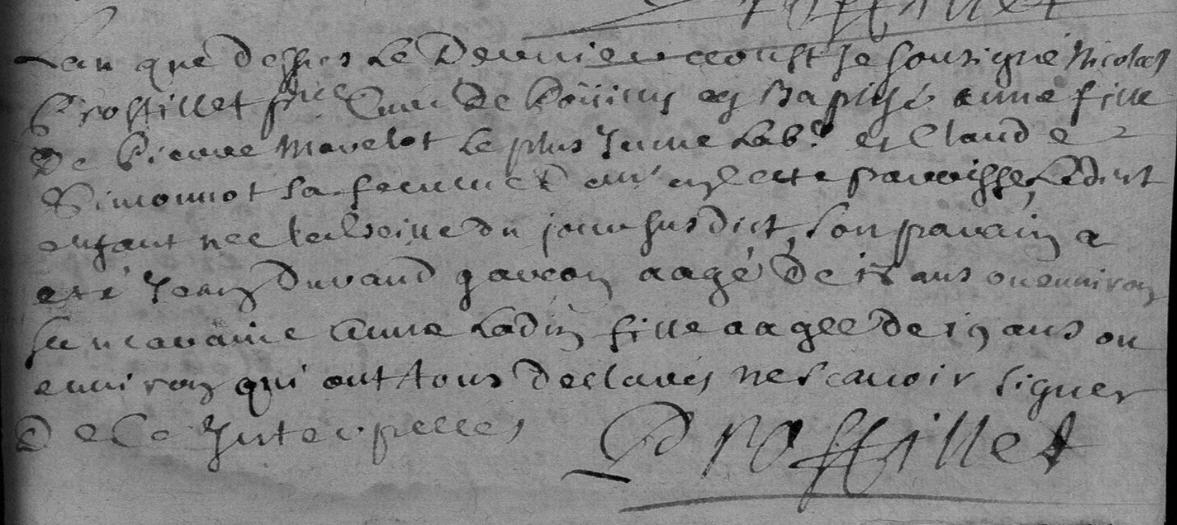 Lan que dessus Le Dernier aoust Je sousigné Nicolas
Proffillet pbre Curé de ay Baptisé anne fille
De Pierre Mavelot Le plus Jeune Lab.r et Claude
Simonnot sa femme de cette parroisse, Ledict
enfant nee du jour susdict, son parain a
esté Jean Durand garcon aagé De 18 ans ou environ
sa maraine Anne Ladin fille aagee De 19 ans ou
environ qui ont tous Declarés ne scavoir signer
De Ce Interpelles
Proffillet